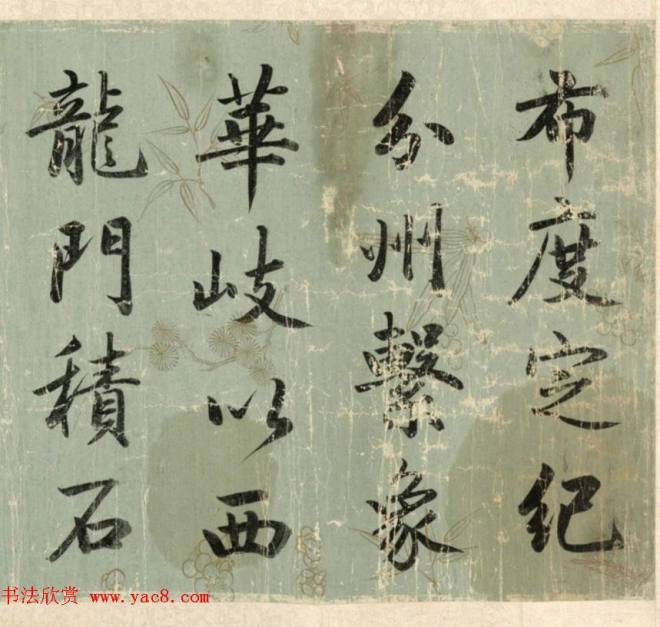 布度定紀
分州繫象
華岐以西
龍門積石
书法欣赏 www.yac8.com